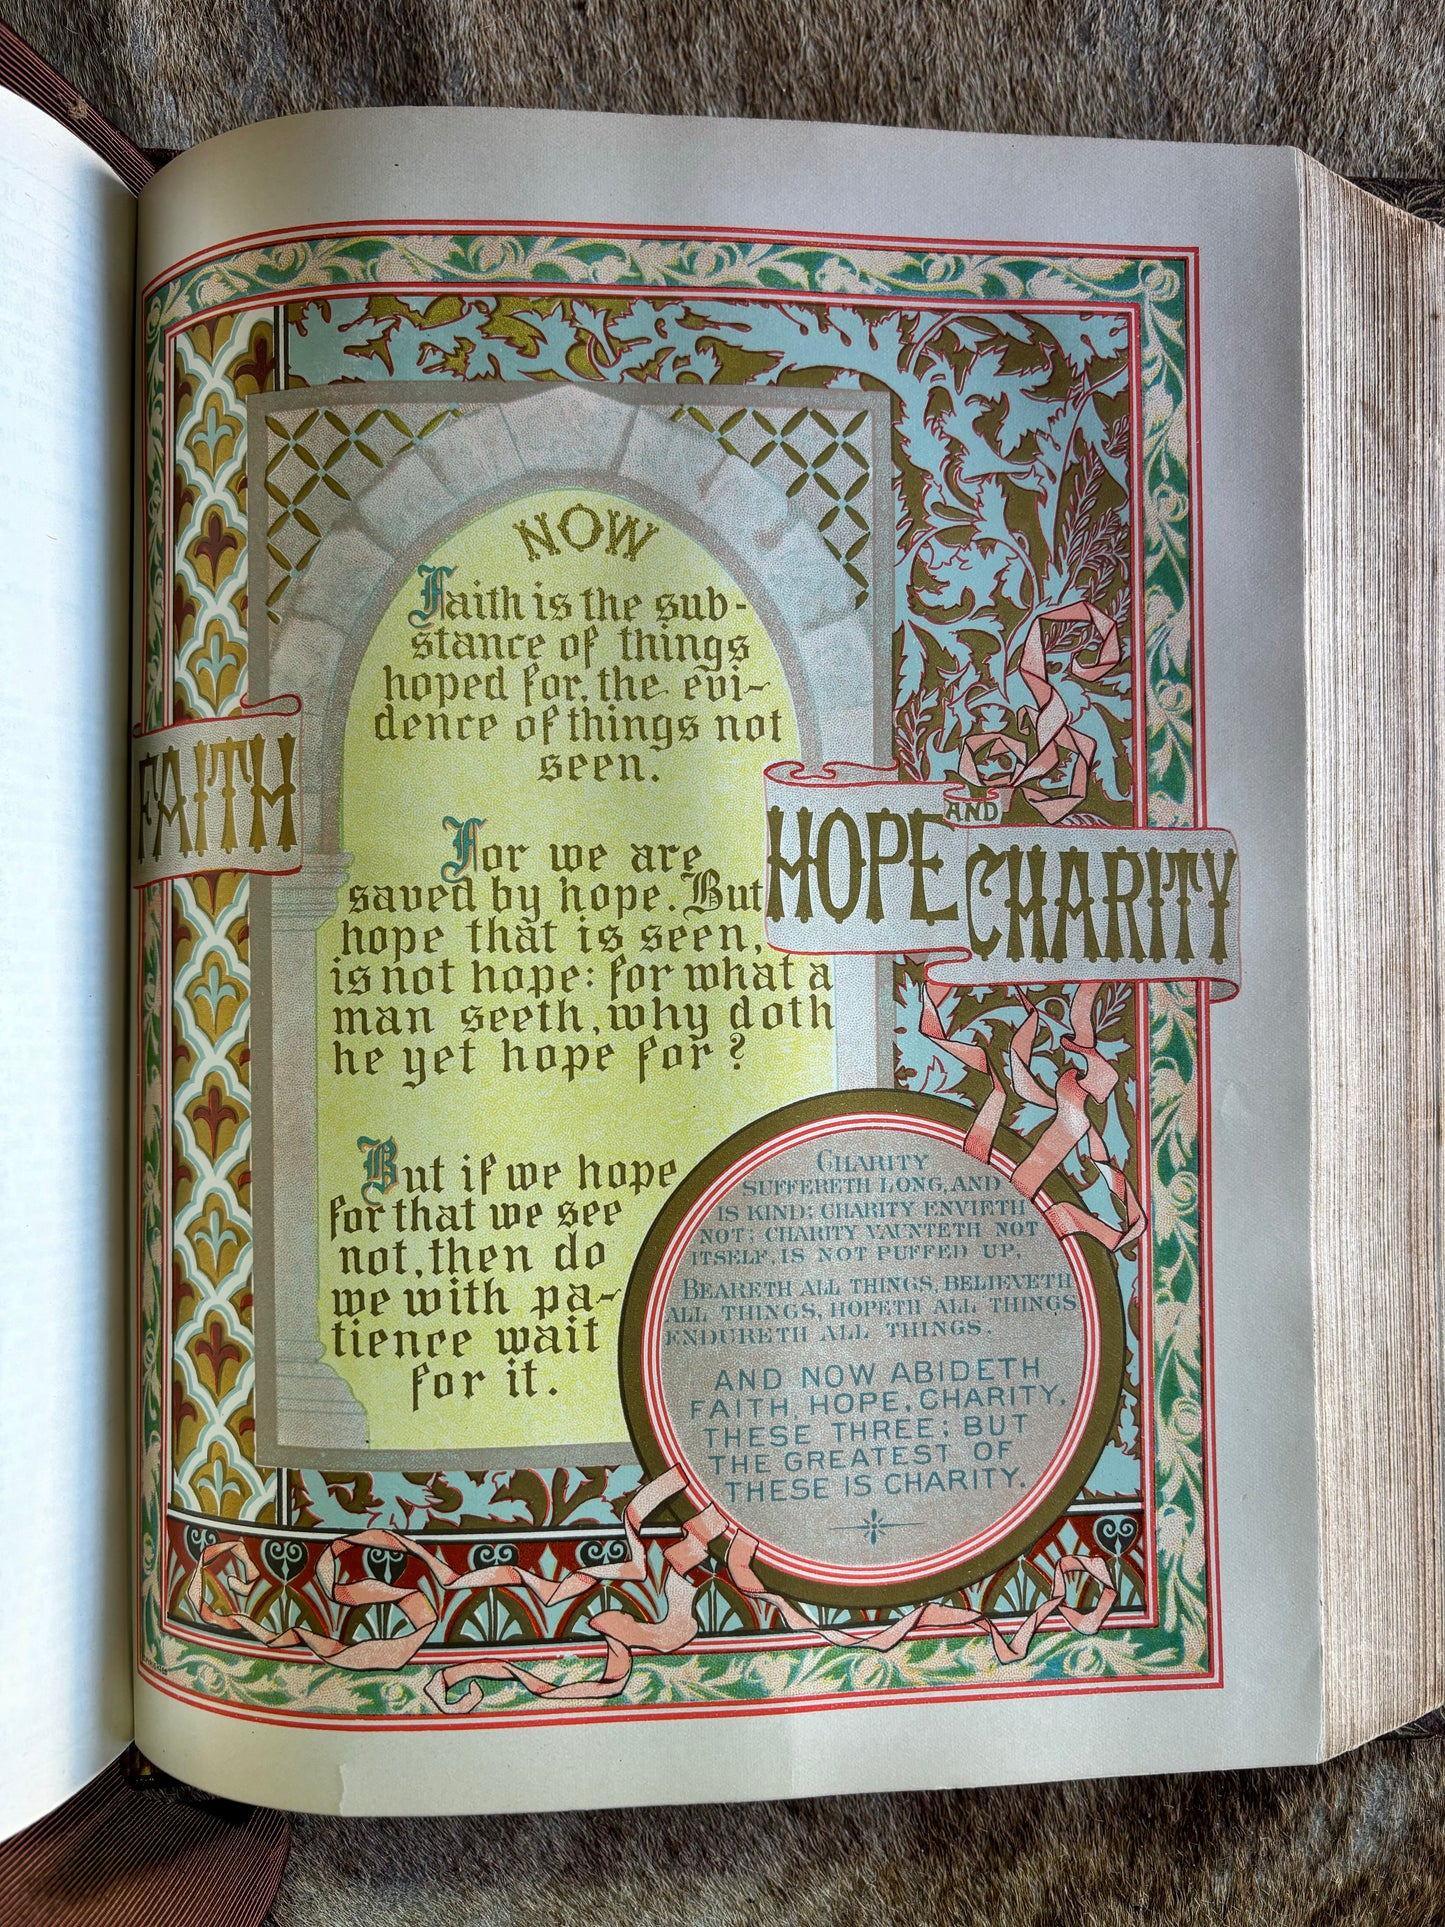 NOW
Faith is the sub-
stance of things
hoped for, the evi-
dence of things not
seen.
For we are
saved by hope. But
hope that is seen,
is not hope: for what a
man seeth, why doth
he yet hope for?
But if we hope
for that we see
not, then do
we with pa-
tience wait
for it.
FAITH
HOPE AND
CHARITY
CHARITY
SUFFERETH LONG, AND
IS KIND; CHARITY ENVIETH
NOT; CHARITY VAUNTETH NOT
ITSELF, IS NOT PUFFED UP,
BEARETH ALL THINGS, BELIEVETH
ALL THINGS, HOPETH ALL THINGS,
ENDURETH ALL THINGS.
AND NOW ABIDETH
FAITH, HOPE, CHARITY,
THESE THREE; BUT
THE GREATEST OF
THESE IS CHARITY.